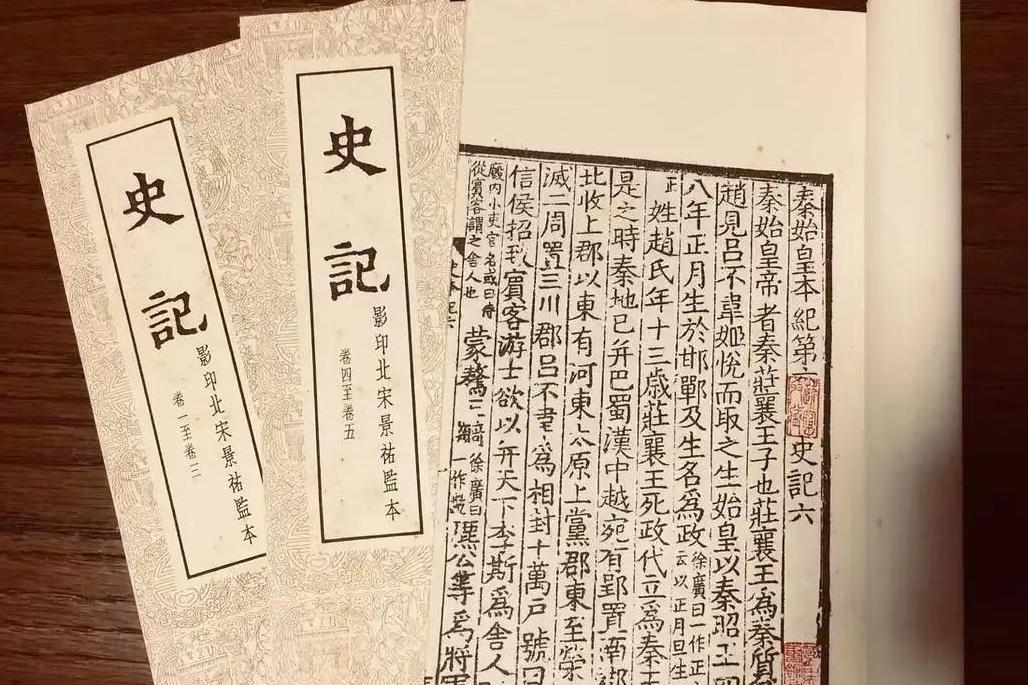 史記
影印北宋景祐監本
卷一至卷三
史記
影印北宋景祐監本
卷四至卷五
秦始皇本紀第 史記六
秦始皇帝者秦莊襄王子也莊襄王為秦質
趙見呂不韋姬悅而取之生始皇以秦昭王四
八年正月生於邯鄲及生名為政徐廣曰一作正云以正月旦生
正姓趙氏年十三歲莊襄王死政代立為秦王
是之時秦地已并巴蜀漢中越宛有郢置南郡
北收上郡以東有河東太原上黨郡東至滎
滅二周置三川郡呂不韋為相封十萬戶號曰
信侯招致賓客游士欲以并天下李斯為舍人
廄內小吏官名或曰侍從賓客謂之舍人也蒙驁王齮徐廣曰一作麃公等為將軍